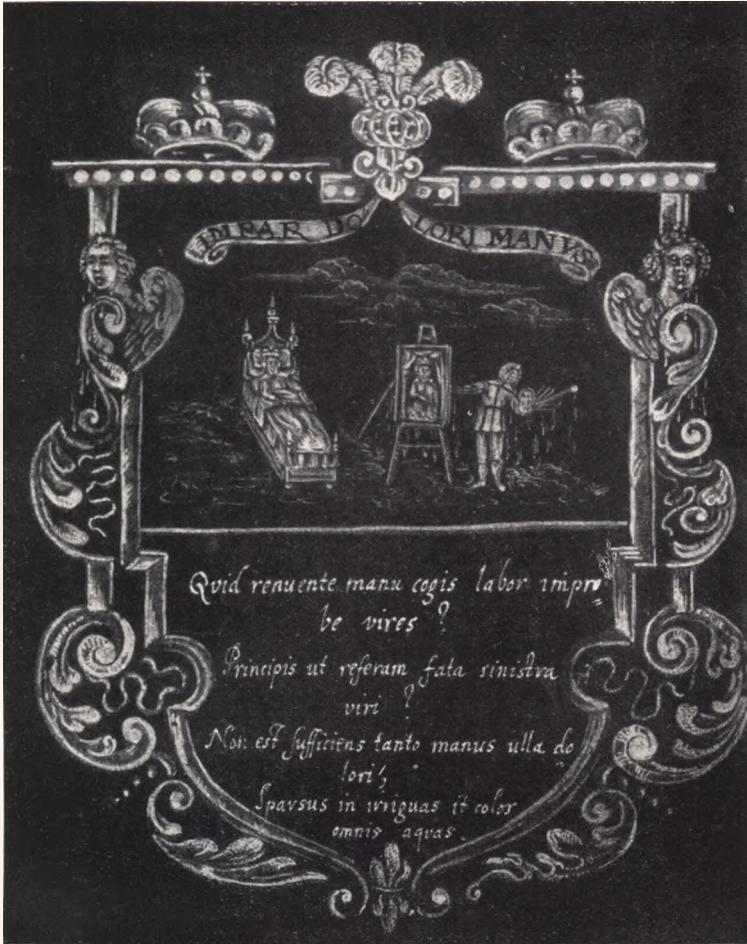 IMPAR DO LORI MANVS
Qvid renuente manu cogis labor impro=
be vires?
Principis ut referam fata sinistra
viri?
Non est sufficiens tanto manus ulla do
lori;
Sparsus in irriguas it color
omnis aquas.